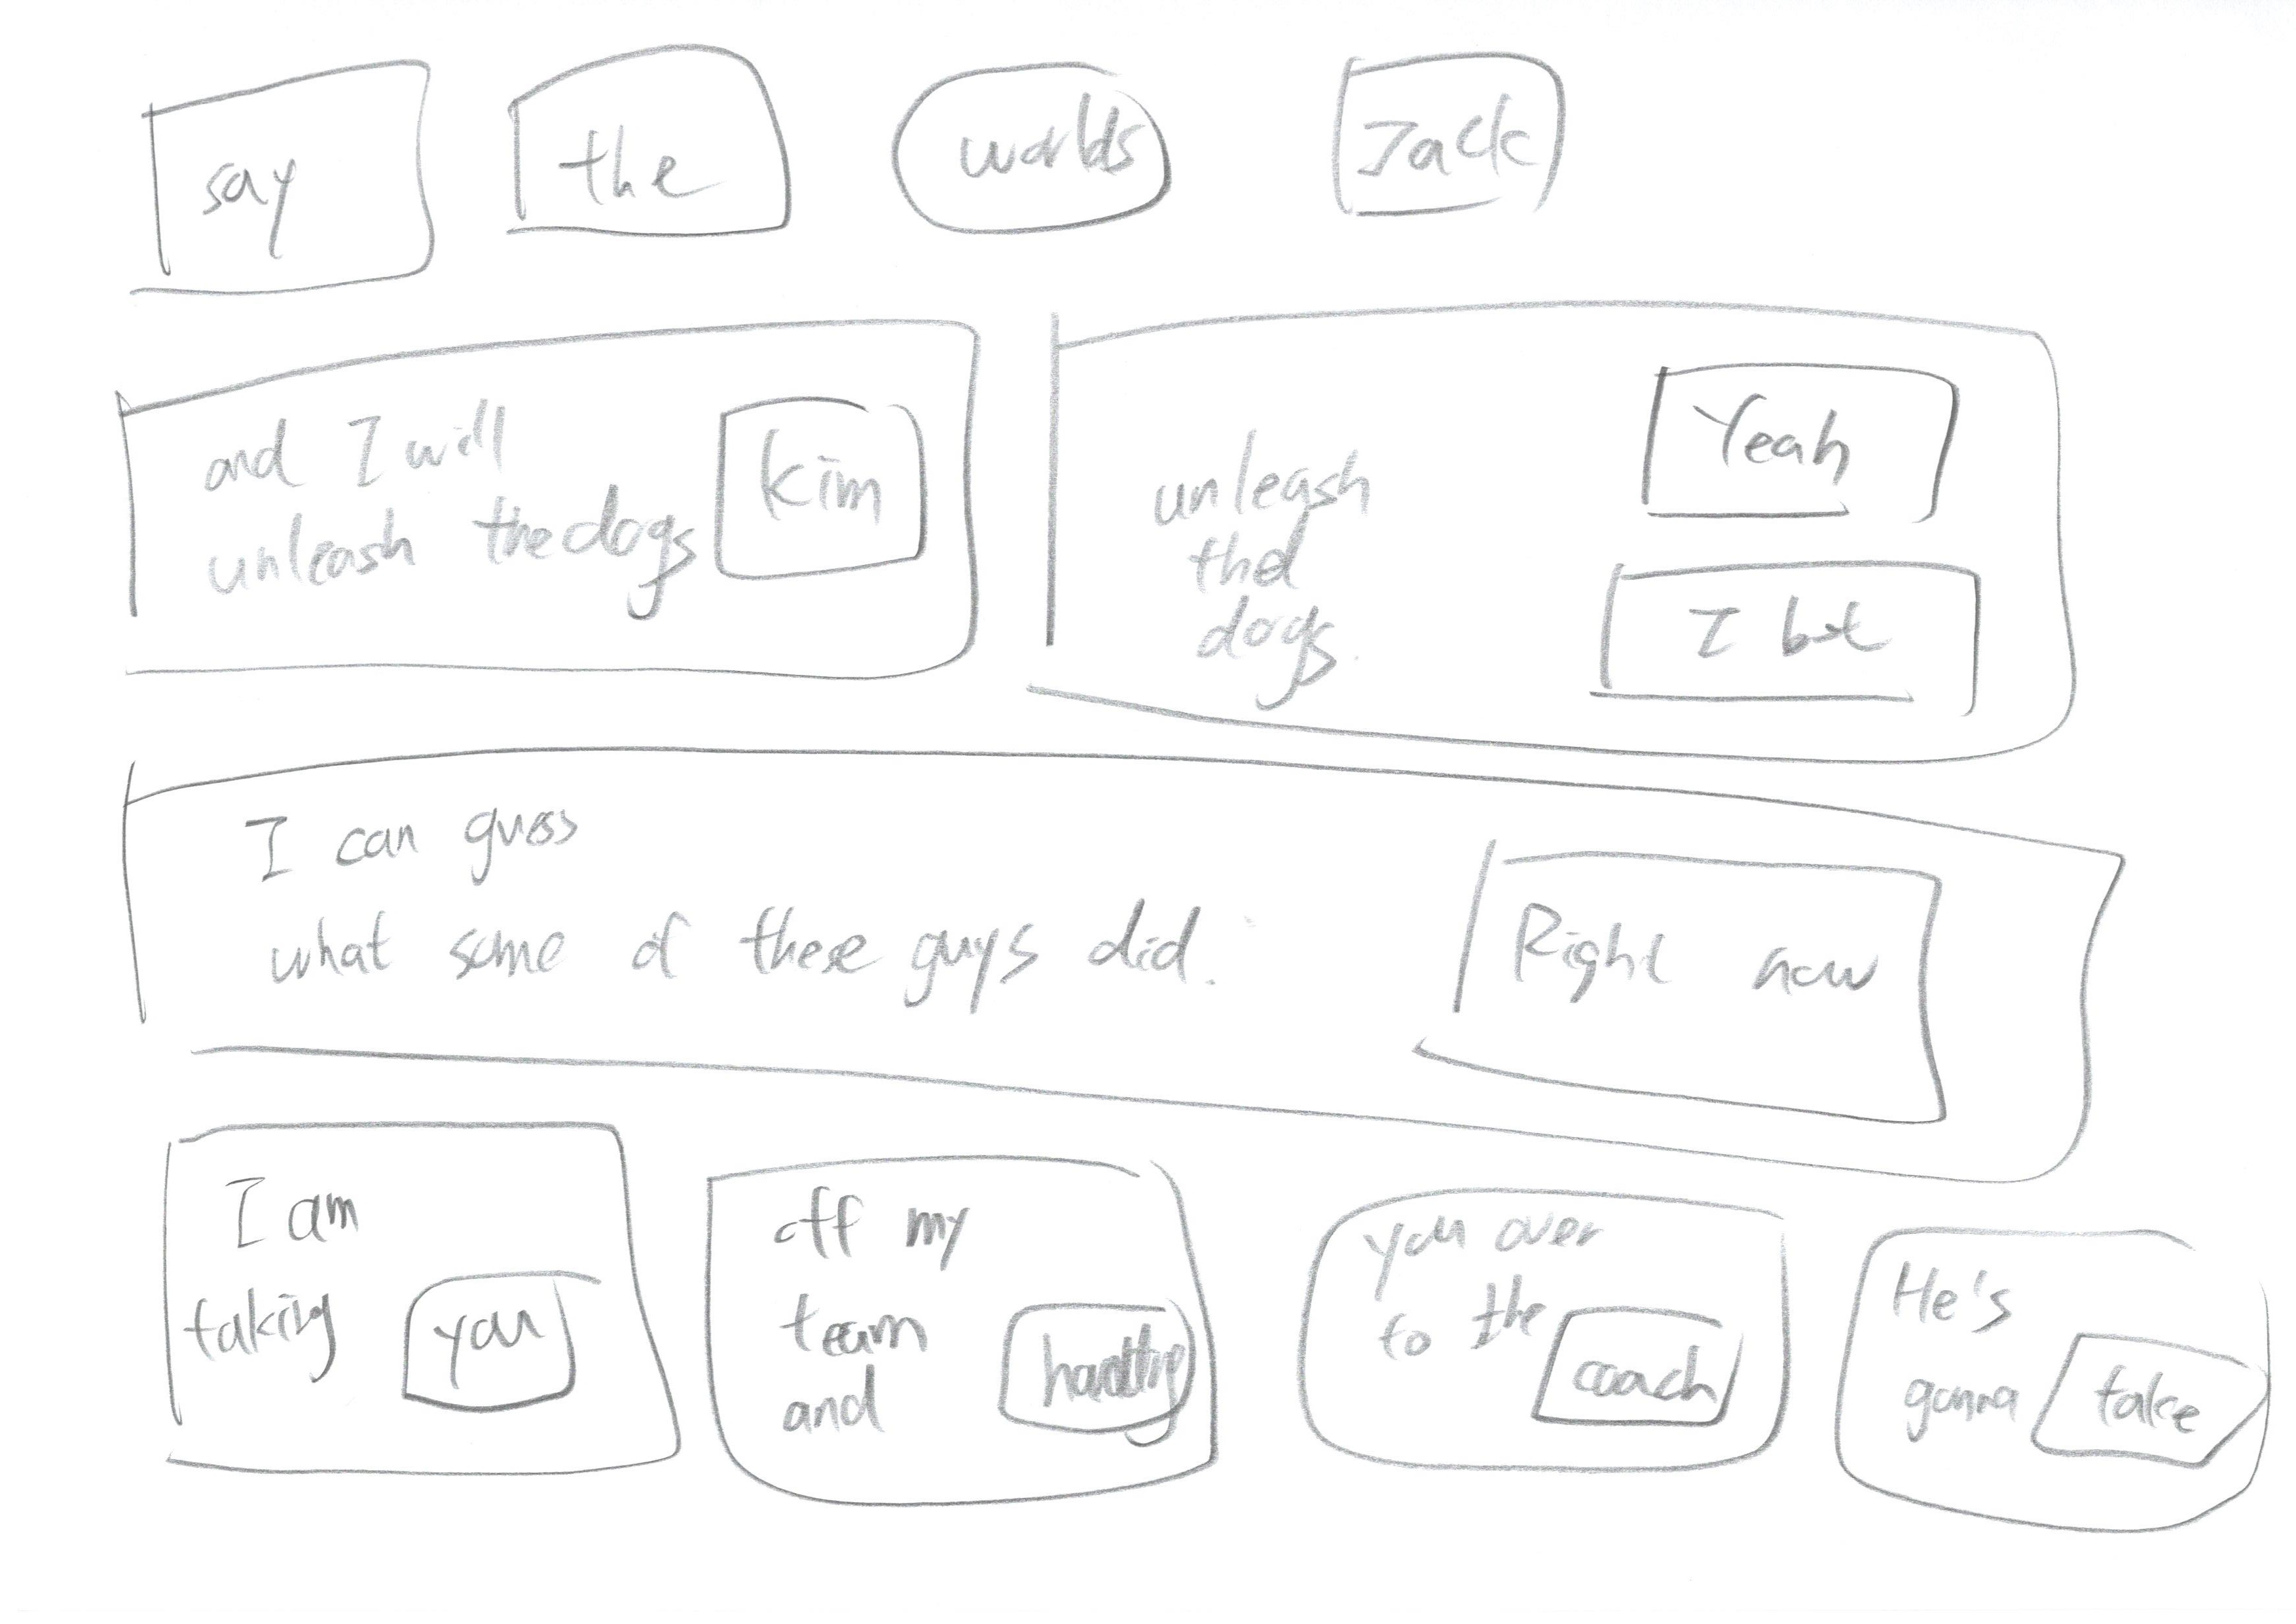 say the worlds Jack
and I will
unleash the dogs kim
unleash
the
dogs.
Yeah
I bet
I can guess
what some of these guys did.
Right now
I am
taking you
off my
team
and
you over
to the coach
He's
gonna take